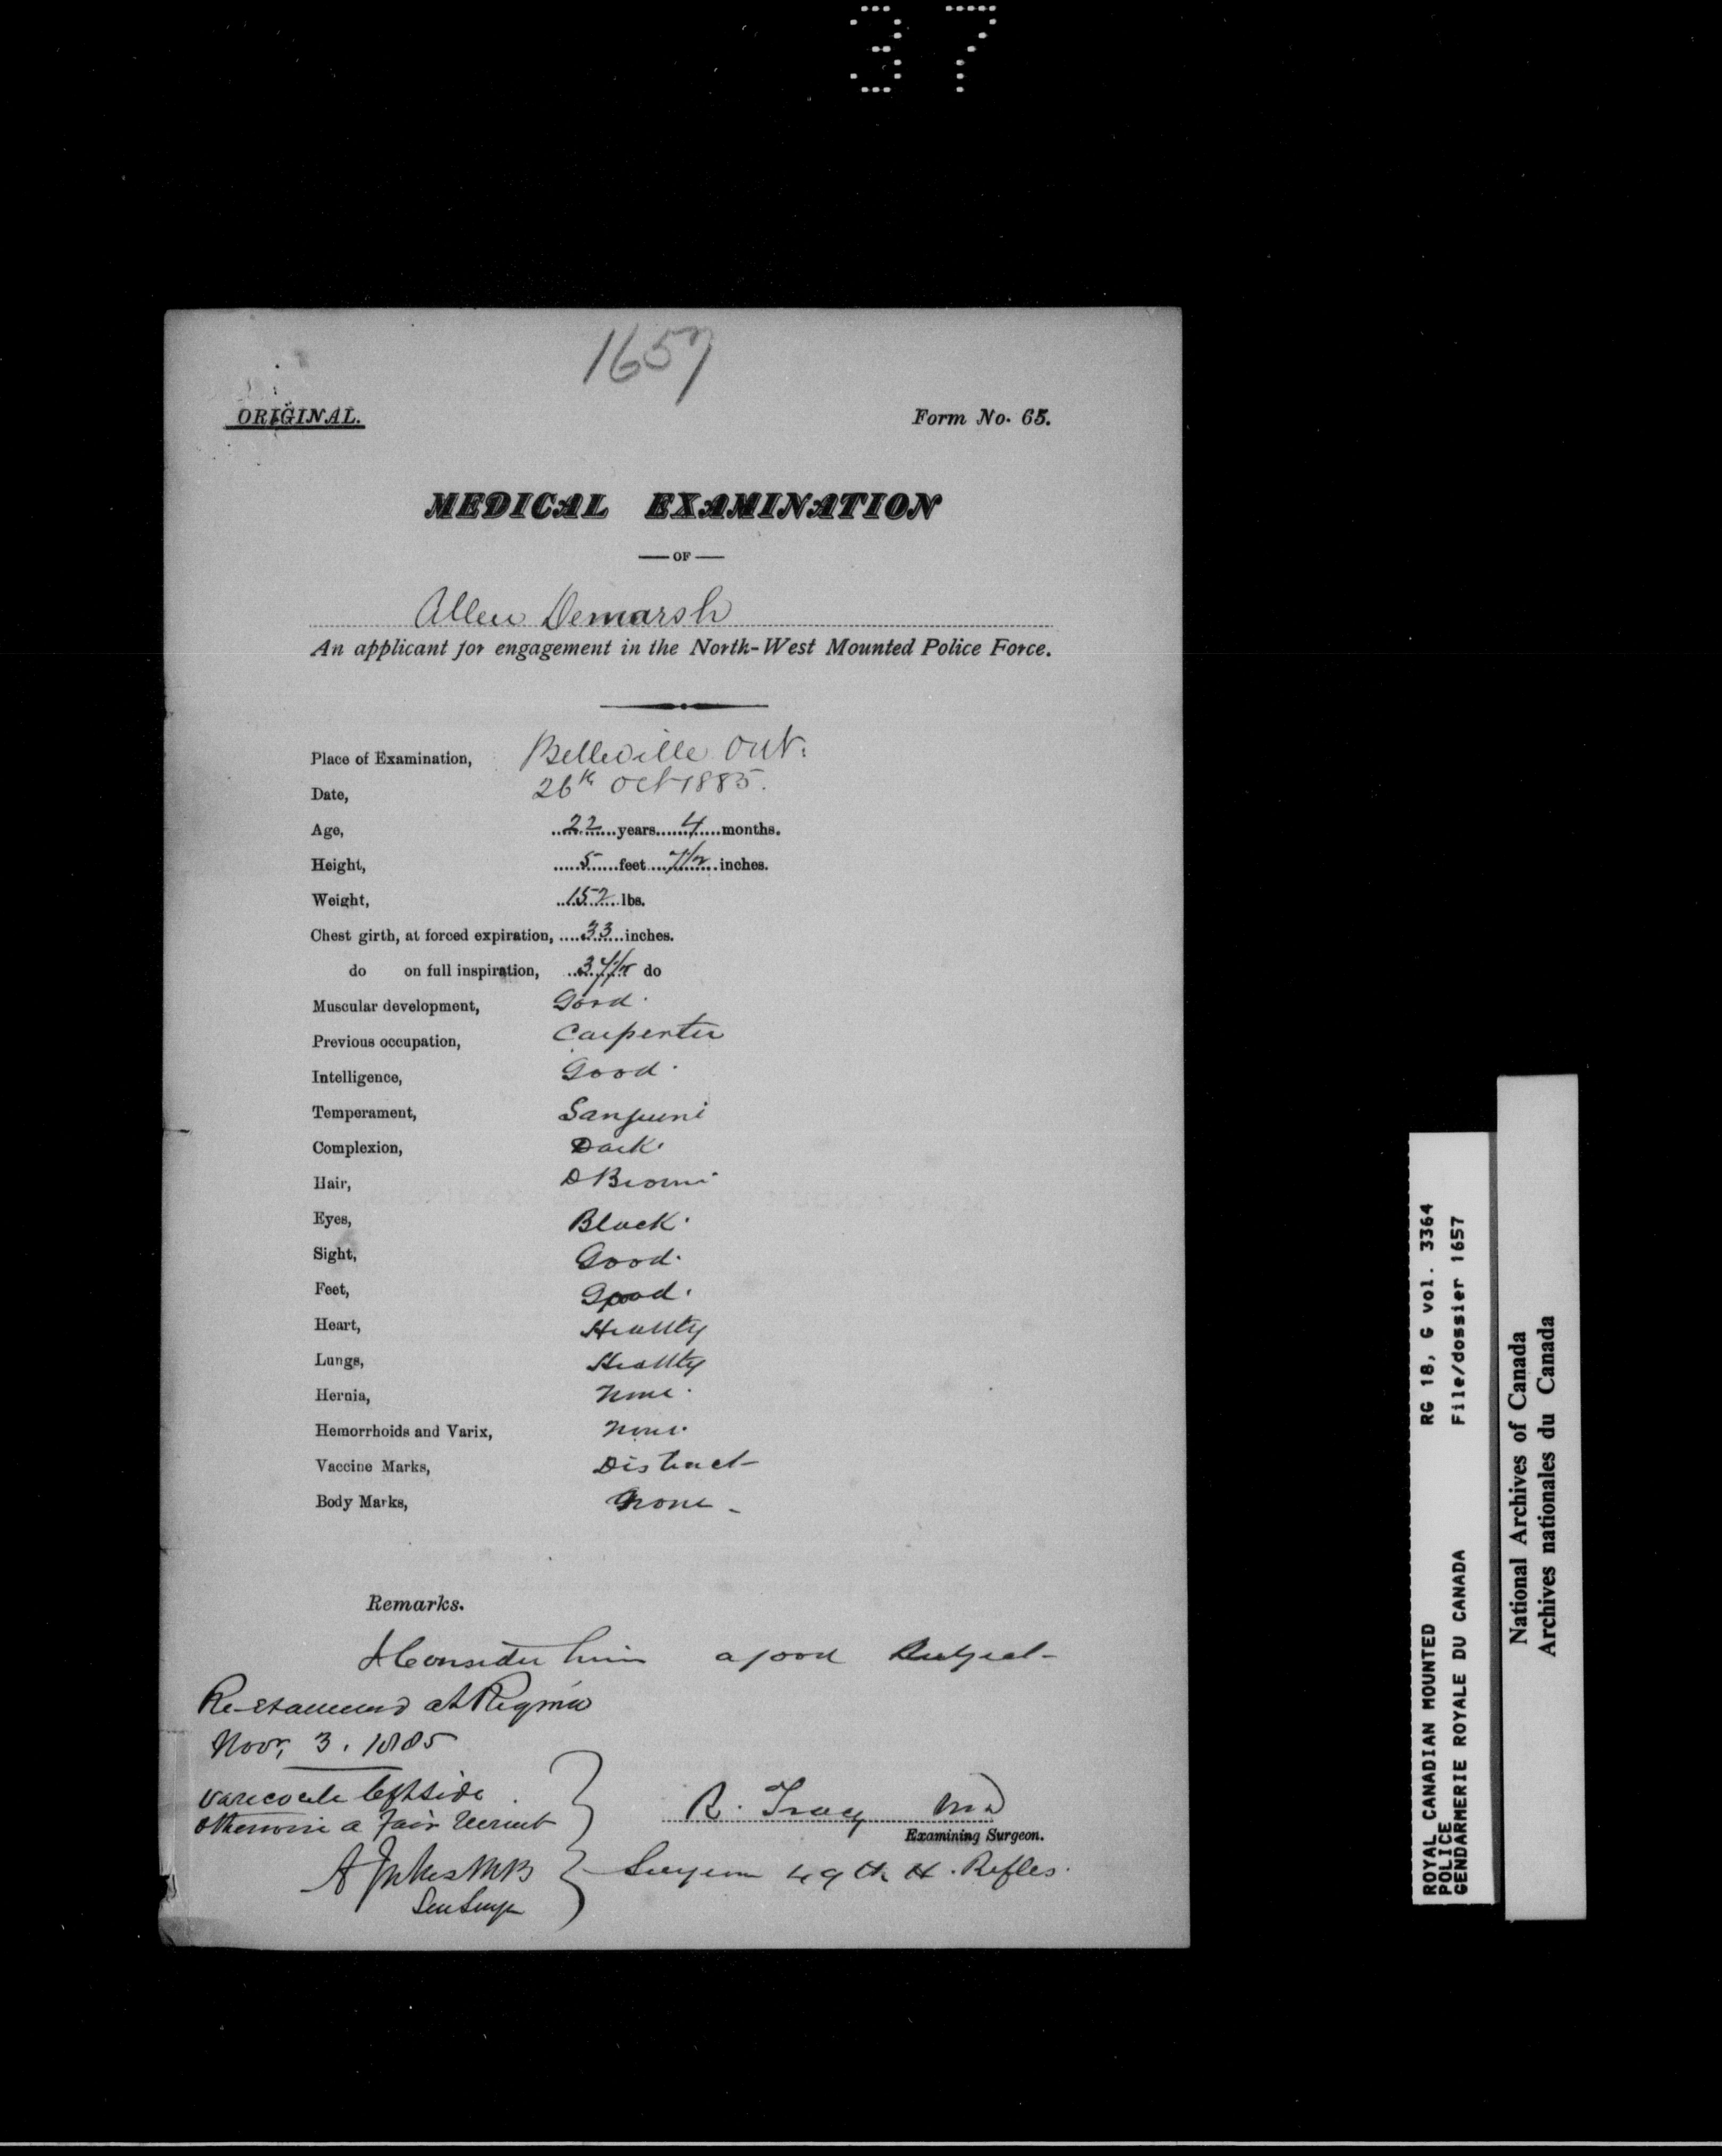 37
1657
ORIGINAL.
Form No. 65.
MEDICAL EXAMINATION
OF
Allen Demarsh
An applicant for engagement in the North-West Mounted Police Force.
Place of Examination, Belleville Ont.
Date, 26th Oct 1885.
Age, 22 years 4 months.
Height, 5 feet 7 1/2 inches.
Weight, 152 lbs.
Chest girth, at forced expiration, 33 inches.
do on full inspiration, 37 1/2 do
Muscular development, Good.
Previous occupation, Carpenter
Intelligence, Good.
Temperament, Sanguine
Complexion, Dark.
Hair, D Brown
Eyes, Black.
Sight, Good.
Feet, Good.
Heart, Healthy
Lungs, Healthy
Hernia, None.
Hemorrhoids and Varix, None.
Vaccine Marks, Distinct
Body Marks, None
Remarks.
I Consider him a good Subject
Re-examined at Regina
Novr. 3. 1885
varicocele left side
otherwise a fair recruit
A Jukes MB
Sen Surgn
R. Tracy MD
Examining Surgeon.
Surgeon 49th H. Rifles.
ROYAL CANADIAN MOUNTED RG 18, G vol. 3364
POLICE
GENDARMERIE ROYALE DU CANADA File/dossier 1657
National Archives of Canada
Archives nationales du Canada